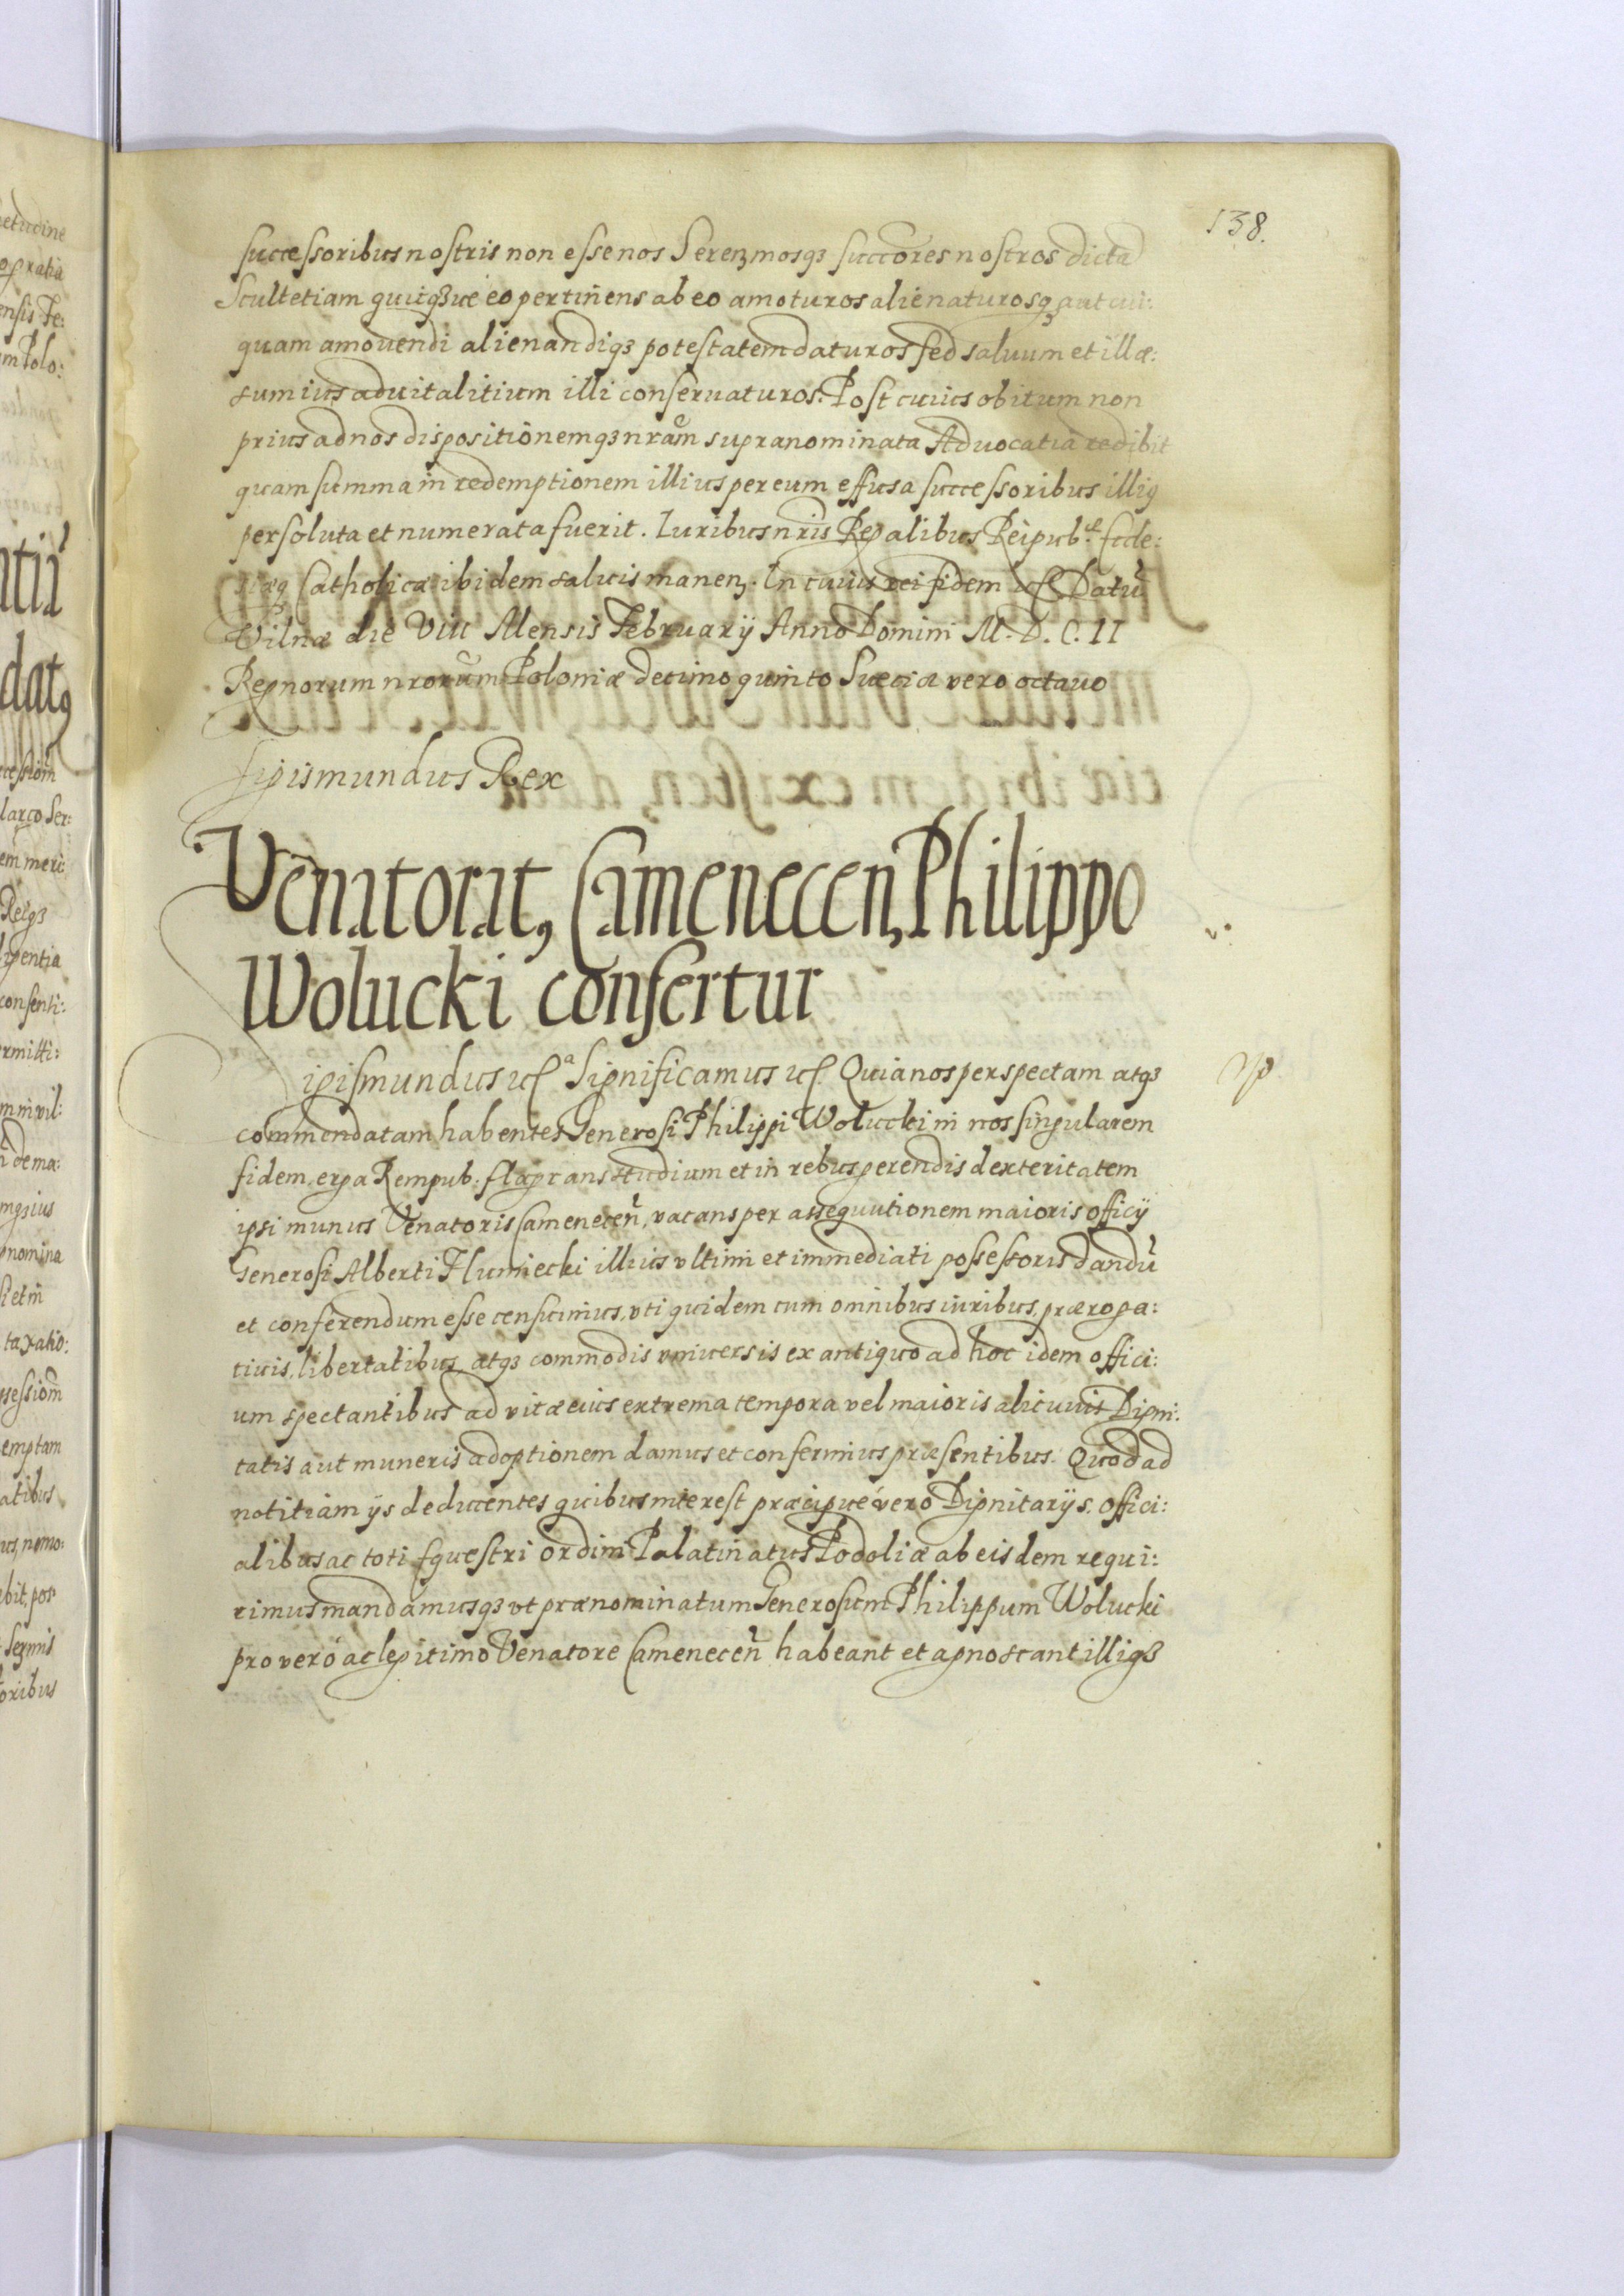 138.
successoribus nostris non esse nos Serenmosq3 succores nostros dicta
Scultetiam quitq3ue eo pertinens ab eo amoturos alienaturosq3 aut cui:
quam amovendi alienandiq3 potestatem daturos sed salvum et illæ:
sum ius advitalitium illi conservaturos. Post cuius obitum non
prius ad nos dispositionemq3 nram supranominata Advocatia redibit
quam summa in redemptionem illius per eum effusa successoribus illiq
persoluta et numerata fuerit. Iuribus nris Regalibus Reipub. Eccle:
siæq Catholicæ ibidem salvis manen. In cuius rei fidem etc Datũ
Vilnæ die VIII Mensis February Anno Domini M. D. C. II
Regnorum nrorum Poloniæ decimo quinto Sueciæ vero octavo
Sigismundus Rex
Venatorat, Camenecen, Philippo
Wolucki confertur
Sigismundus etc a Significamus etc. Quia nos perspectam atq3
commendatam habentes Generosi Philippi Wolucki in nos singularem
fidem, erga Rempub: flagrans studium et in rebus gerendis dexteritatem
ipsi munus Venatoris Camenecen, vacans per assequutionem maioris officy
Generosi Alberti Humiecki illius ultimi et immediati possessoris dandũ
et conferendum esse censuimus, uti quidem cum omnibus iuribus, præroga:
tivis, libertatibus atq3 commodis universis ex antiquo ad hoc idem offici:
um spectantibus ad vitæ eius extrema tempora vel maioris alicuius Digni:
tatis aut muneris adoptionem damus et conferimus præsentibus. Quod ad
notitiam ijs deducentes quibus interest præcipue vero Dignitarijs, offici:
alibus ac toti Equestri ordini Palatinatus Podoliæ ab eisdem requi:
rimus mandamusq3 ut prænominatum Generosum Philippum Wolucki
pro vero ac legitimo Venatore Camenecen habeant et agnoscant illiq3